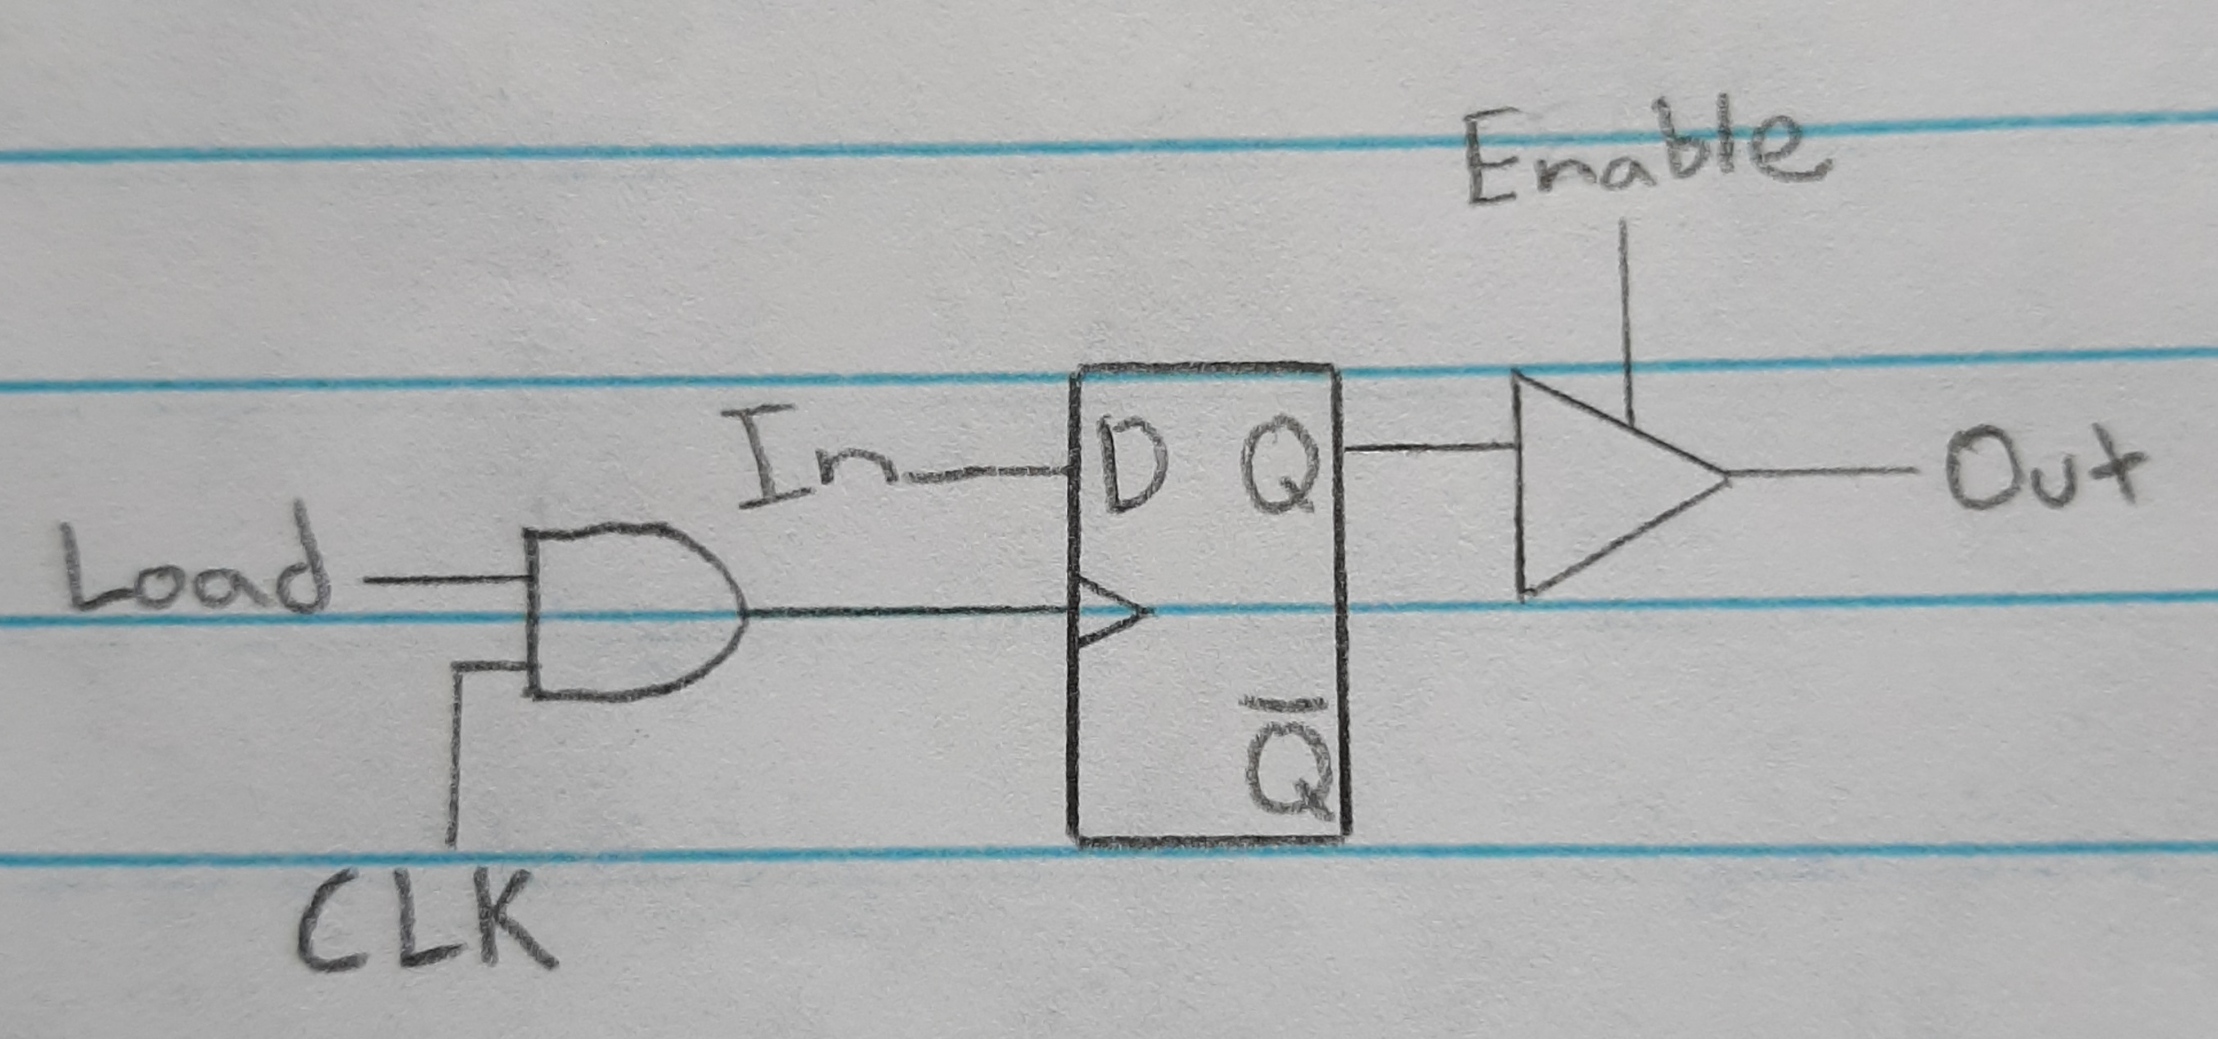 Enable
In
D Q
Out
Load
Q̅
CLK